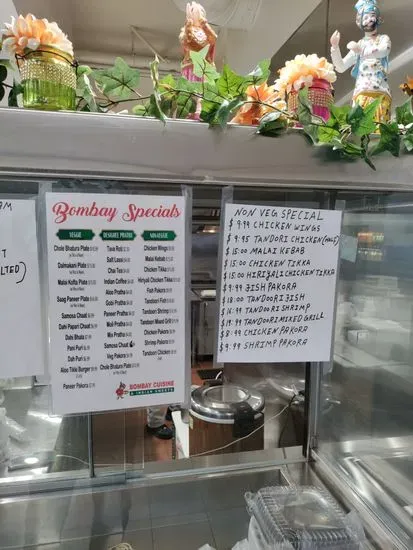 AM
T
LTED)
Bombay Specials
VEGGIE
Chole Bhatura Plate
Dalmakani Plate
Malai Kofta Plate
Saag Paneer Plate
Samosa Chaat
Dahi Papari Chaat
Dahi Bhala
Pani Puri
Dah Puri
Aloo Tikki Burger
Paneer Pakora
Tava Roti
Salt Lassi
Chai Tea
Indian Coffee
Aloo Pratha
Gobi Pratha
Paneer Pratha
Moli Pratha
Mix Pratha
Samosa Chaat
Veg Pakora
Chole Bhatura Plate
NON-VEGGIE
Chicken Wings
Malai Kebab
Chicken Tikka
Hiryali Chicken Tikka
Fish Pakora
Tandoori Fish
Tandoori Shrimp
Tandoori Mixed Grill
Chicken Pakora
Shrimp Pakora
Tandoori Chicken
BOMBAY CUISINE
& INDIAN SWEETS
NON VEG SPECIAL
$ 9.99 CHICKEN WINGS
$ 9.95 TANDORI CHICKEN (HALF)
$ 15.00 MALAI KEBAB
$ 15.00 CHICKEN TIKKA
$ 15.00 HIRIYALI CHICKEN TIKKA
$ 9.99 FISH PAKORA
$ 18.00 TANDOORI FISH
$ 16.99 TANDOORI SHRIMP
$ 19.99 TANDOORI MIXED GRILL
$ 8.99 CHICKEN PAKORA
$ 9.99 SHRIMP PAKORA